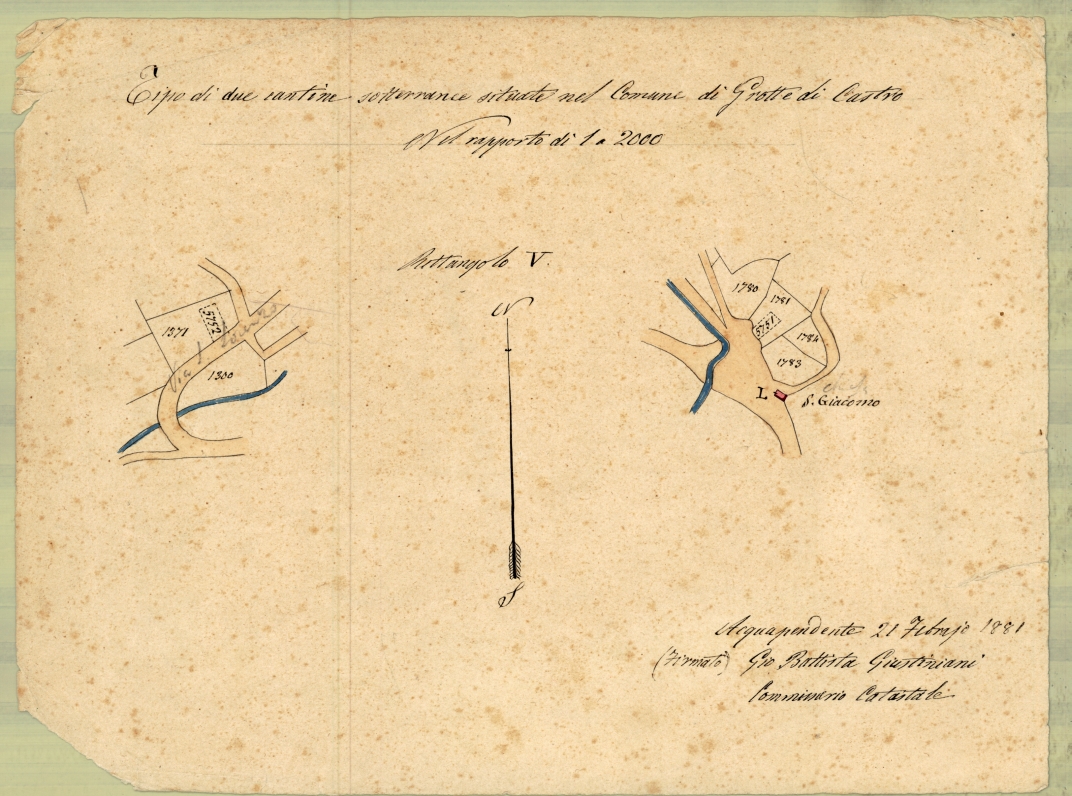 Tipo di due cantine sotterranee situate nel Comune di Grotte di Castro
Nel rapporto di 1 a 2000
Rettangolo V.
N
S
1371
5752
Via S. Lorenzo
1300
1780
1781
5751
1784
1783
L
S. Giacomo
Acquapendente 21 Febrajo 1881
(Firmato) Gio Battista Giustiniani
Commissario Catastale